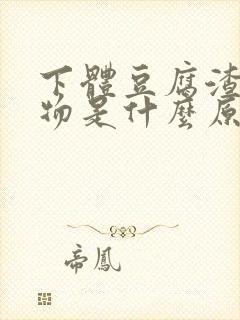 下體豆腐渣
物是什麼原
帝鳳